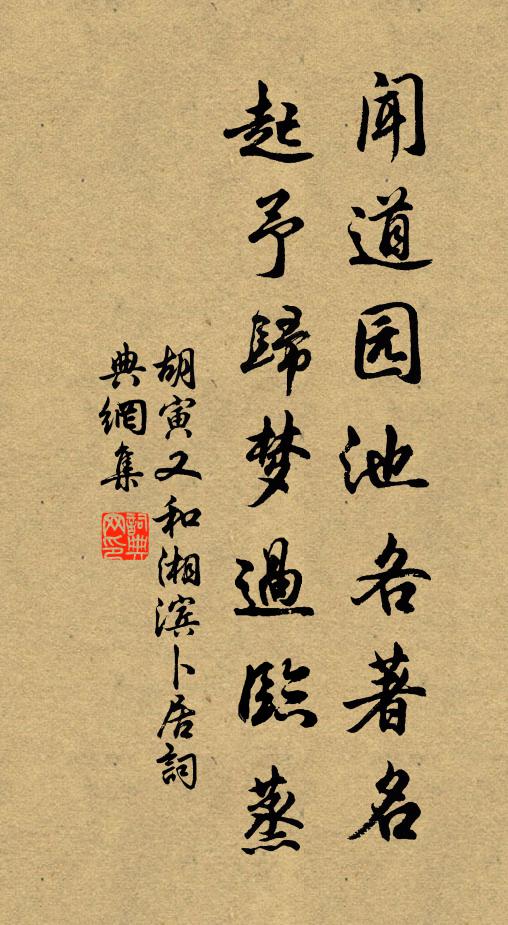 闻道园池各著名
起予歸梦過臨蒸
胡寅又和湘滨卜居詞
典網集
詞典
网印